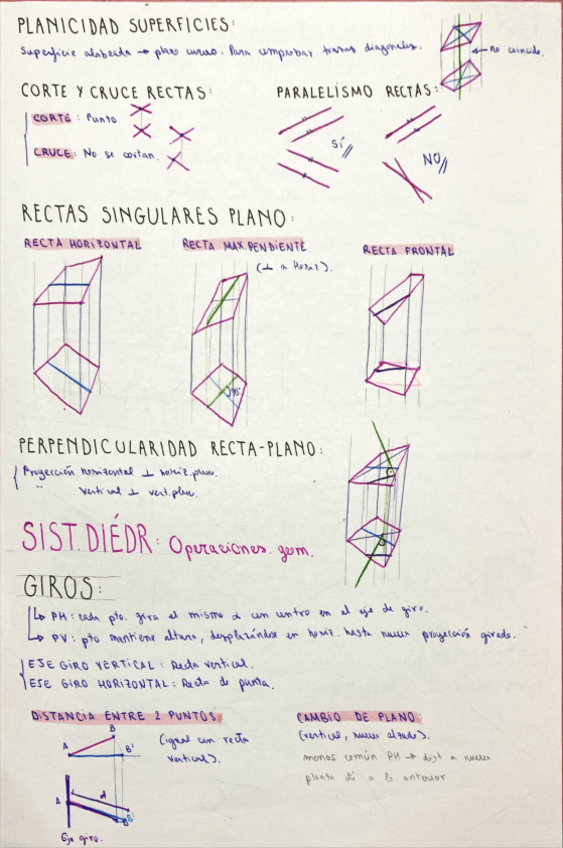 PLANICIDAD SUPERFICIES:
Superficie alabeada → plano curvo. Para comprobar trazas diagonales.
← no coincide.
CORTE Y CRUCE RECTAS:
PARALELISMO RECTAS:
CORTE: Punto
CRUCE: No se cortan.
SÍ//
NO//
RECTAS SINGULARES PLANO:
RECTA HORIZONTAL
RECTA MAX.PENDIENTE
(⊥ a Horiz).
RECTA FRONTAL
90°
PERPENDICULARIDAD RECTA-PLANO:
Proyección horizontal ⊥ horiz.plano.
" vertical ⊥ vert.plano.
SIST. DIÉDR: Operaciones. geom.
GIROS:
↳ PH: cada pto. gira el mismo α con centro en el eje de giro.
↳ PV: pto mantiene altura, desplazándose en horiz. hasta nueva proyección girada.
EJE GIRO VERTICAL: Recta vertical.
EJE GIRO HORIZONTAL: Recta de punta.
DISTANCIA ENTRE 2 PUNTOS
CAMBIO DE PLANO:
(igual con recta
vertical).
(vertical, nuevo alzado).
menos común PH → dist a nueva
planta d a la anterior
A
B
B'
A
d
B
B'
Eje giro.